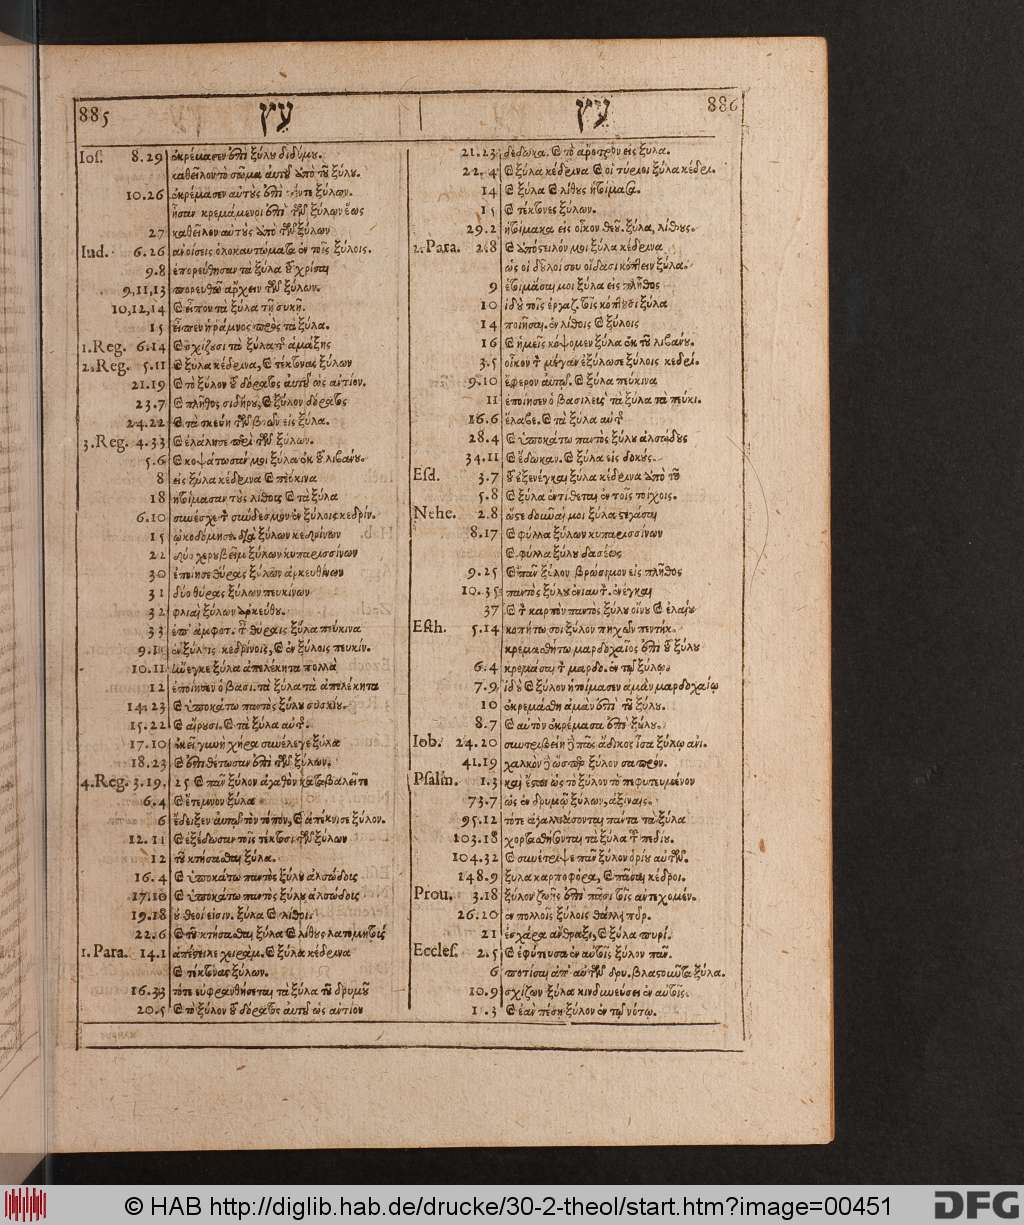 885 עֵץ
Ios. 8.29 ἐκρέμασεν ἐπὶ ξύλου διδύμου.
καθεῖλον τὸ σῶμα αὐτοῦ ἀπὸ τοῦ ξύλου.
10.26 ἐκρέμασεν αὐτοὺς ἐπὶ πέντε ξύλων.
ἦσαν κρεμάμενοι ἐπὶ τῶν ξύλων ἕως
27 καθεῖλον αὐτοὺς ἀπὸ τῶν ξύλων
Iud. 6.26 ἀνοίσεις ὁλοκαυτώματα ἐν τοῖς ξύλοις.
9.8 ἐπορεύθησαν τὰ ξύλα τοῦ χρίσαι
9,11,13 πορευθῶ ἄρχειν τῶν ξύλων.
10,12,14 καὶ εἶπον τὰ ξύλα τῇ συκῇ.
15 εἶπεν ἡ ῥάμνος πρὸς τὰ ξύλα.
1.Reg. 6.14 καὶ σχίζουσι τὰ ξύλα τῆς ἁμάξης
2.Reg. 5.11 καὶ ξύλα κέδρινα, καὶ τέκτονας ξύλων
21.19 καὶ τὸ ξύλον τοῦ δόρατος αὐτοῦ ὡς ἀντίον.
23.7 καὶ πλῆθος σιδήρου, καὶ ξύλον δόρατος
24.22 καὶ τὰ σκεύη τῶν βοῶν εἰς ξύλα.
3.Reg. 4.33 καὶ ἐλάλησε περὶ τῶν ξύλων.
5.6 καὶ κοψάτωσάν μοι ξύλα ἐκ τοῦ λιβάνου.
8 εἰς ξύλα κέδρινα καὶ πεύκινα
18 ἡτοίμασαν τοὺς λίθους καὶ τὰ ξύλα
6.10 συνέσχε τὸν σύνδεσμον ἐν ξύλοις κεδρίν.
15 ᾠκοδόμησε διὰ ξύλων κεδρίνων
22 δύο χερουβεὶμ ξύλων κυπαρισσίνων
30 ἐποίησε θύρας ξύλων ἀρκευθίνων
31 δύο θύρας ξύλων πευκίνων
32 φλιαὶ ξύλων ἀρκεύθου.
33 ἐπ' ἀμφοτ. τὰς θύραις ξύλα πεύκινα
ἐν ξύλοις κεδρίνοις, καὶ ἐν ξύλοις πευκίν.
10.11 ἤνεγκε ξύλα ἀπελέκητα πολλὰ
12 ἐποίησεν ὁ βασι. τὰ ξύλα τὰ ἀπελέκητα
14.23 καὶ ὑποκάτω παντὸς ξύλου συσκίου.
15.22 καὶ αἴρουσι. καὶ τὰ ξύλα αὐτῆς.
17.10 ἐκεῖ γυνὴ χήρα συνέλεγε ξύλα
18.23 καὶ ἐπιθέτωσαν ἐπὶ τῶν ξύλων.
4.Reg. 3.19. 25 καὶ πᾶν ξύλον ἀγαθὸν καταβαλεῖτε
6.4 καὶ ἔτεμνον ξύλα
6 ἔδειξεν αὐτῷ τὸν τόπον, καὶ ἀπέκνισε ξύλον.
12.11 καὶ ἐξέδωσαν τοῖς τέκτοσι τῶν ξύλων
12 τοῦ κτήσασθαι ξύλα.
16.4 καὶ ὑποκάτω παντὸς ξύλου ἀλσώδους
17.10 καὶ ὑποκάτω παντὸς ξύλου ἀλσώδους
19.18 οὐ θεοί εἰσιν. ξύλα καὶ λίθοι.
22.6 καὶ τοῦ κτήσασθαι ξύλα καὶ λίθους λατομητοὺς
1.Para. 14.1 ἀπέστειλε χειράμ. καὶ ξύλα κέδρινα
καὶ τέκτονας ξύλων.
16.33 τότε εὐφρανθήσεται τὰ ξύλα τοῦ δρυμοῦ
20.5 καὶ τὸ ξύλον τοῦ δόρατος αὐτοῦ ὡς ἀντίον
עֵץ 886
21.23 δέδωκα. καὶ τὸ ἄροτρον εἰς ξύλα.
22.4 καὶ ξύλα κέδρινα καὶ οἱ τύριοι ξύλα κέδρι.
14 καὶ ξύλα καὶ λίθους ἡτοίμασα.
15 καὶ τέκτονες ξύλων.
29.2 ἡτοίμακα εἰς οἶκον θεοῦ. ξύλα, λίθους.
2.Para. 2.8 καὶ ἀπόστειλόν μοι ξύλα κέδρινα
ὡς οἱ δοῦλοί σου οἴδασι κόπτειν ξύλα.
9 ἑτοιμάσαι μοι ξύλα εἰς πλῆθος
10 ἰδοὺ τοῖς ἐργαζ. τοῖς κόπτουσι ξύλα
14 ποιῆσαι. ἐν λίθοις καὶ ξύλοις
16 καὶ ἡμεῖς κόψομεν ξύλα ἐκ τοῦ λιβάνου.
3.5 οἶκον τὸν μέγαν ἐξύλωσε ξύλοις κεδρί.
9.10 ἔφερον αὐτῷ. καὶ ξύλα πεύκινα
11 ἐποίησεν ὁ βασιλεὺς τὰ ξύλα τὰ πεύκι.
16.6 ἔλαβε. καὶ τὰ ξύλα αὐτῆς
28.4 καὶ ὑποκάτω παντὸς ξύλου ἀλσώδους
34.11 καὶ ἔδωκαν. καὶ ξύλα εἰς δοκούς.
Esd. 3.7 τοῦ ἐξενέγκαι ξύλα κέδρινα ἀπὸ τοῦ
5.8 καὶ ξύλα ἐντίθεται ἐν τοῖς τοίχοις.
Nehe. 2.8 ὥστε δοῦναί μοι ξύλα στεγάσαι
8.17 καὶ φύλλα ξύλων κυπαρισσίνων
καὶ φύλλα ξύλου δασέως
9.25 καὶ πᾶν ξύλον βρώσιμον εἰς πλῆθος
10.35 παντὸς ξύλου ἐνιαυτ. ἐνέγκαι
37 καὶ τὸν καρπὸν παντὸς ξύλου οἴνου καὶ ἐλαίου
Esth. 5.14 κοπήτω σοι ξύλον πηχῶν πεντήκ.
κρεμασθήτω μαρδοχαῖος ἐπὶ τοῦ ξύλου
6.4 κρεμάσαι τὸν μαρδο. ἐν τῷ ξύλῳ.
7.9 ἰδοὺ καὶ ξύλον ἡτοίμασεν ἀμὰν μαρδοχαίῳ
10 ἐκρεμάσθη ἀμὰν ἐπὶ τοῦ ξύλου.
8.7 καὶ αὐτὸν ἐκρέμασα ἐπὶ ξύλου.
Iob. 24.20 συντριβείη δὲ πᾶς ἄδικος ἴσα ξύλῳ ἀνι.
41.19 χαλκὸν δὲ ὥσπερ ξύλον σαπρόν.
Psalm. 1.3 καὶ ἔσται ὡς τὸ ξύλον τὸ πεφυτευμένον
73.7 ὡς ἐν δρυμῷ ξύλων, ἀξίναις.
95.12 τότε ἀγαλλιάσονται πάντα τὰ ξύλα
103.18 χορτασθήσονται τὰ ξύλα τοῦ πεδίου.
104.32 καὶ συνέτριψε πᾶν ξύλον ὁρίου αὐτῶν.
148.9 ξύλα καρποφόρα, καὶ πᾶσαι κέδροι.
Prou. 3.18 ξύλον ζωῆς ἐπὶ πᾶσι τοῖς ἀντεχομέν.
26.20 ἐν πολλοῖς ξύλοις θάλλει πῦρ.
21 ἐσχάρα ἄνθραξι, καὶ ξύλα πυρί.
Eccles. 2.5 καὶ ἐφύτευσα ἐν αὐτοῖς ξύλον πᾶν.
6 ποτίσαι ἀπ' αὐτῶν δρυ. βλαστοῦντα ξύλα.
10.9 σχίζων ξύλα κινδυνεύσει ἐν αὐτοῖς.
11.3 καὶ ἐὰν πέσῃ ξύλον ἐν τῷ νότῳ.
© HAB http://diglib.hab.de/drucke/30-2-theol/start.htm?image=00451
DFG